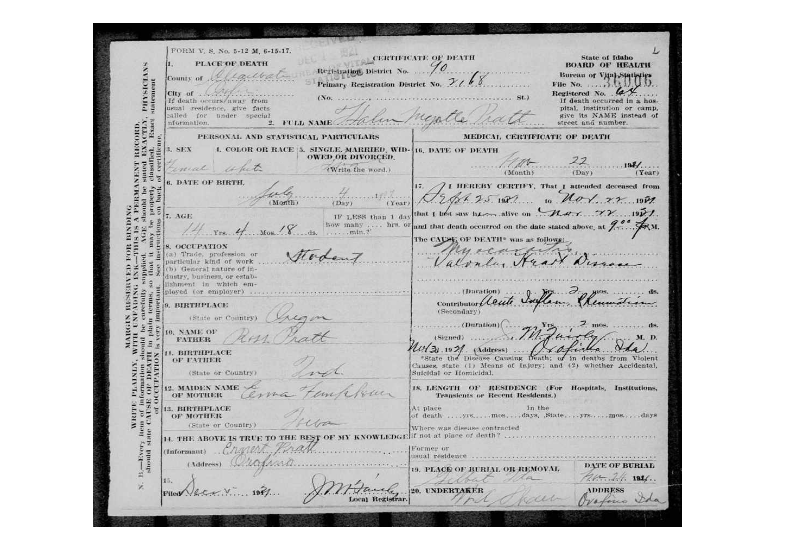 FORM V. S. No. 5-12 M, 6-15-17.
1. PLACE OF DEATH
County of Clearwater
City of Orofino
If death occurs away from
usual residence, give facts
called for under special
information.
CERTIFICATE OF DEATH
Registration District No. 90
Primary Registration District No. 2168
(No. St.)
2. FULL NAME Pratt
State of Idaho
BOARD OF HEALTH
Bureau of Vital Statistics
File No. 36006
Registered No. 64
If death occurred in a hos-
pital, institution or camp,
give its NAME instead of
street and number.
MARGIN RESERVED FOR BINDING
WRITE PLAINLY, WITH UNFADING INK—THIS IS A PERMANENT RECORD.
N. B.—Every item of information should be carefully supplied. AGE should be stated EXACTLY. PHYSICIANS
should state CAUSE OF DEATH in plain terms, so that it may be properly classified. Exact statement
of OCCUPATION is very important. See instructions on back of certificate.
PERSONAL AND STATISTICAL PARTICULARS
3. SEX 4. COLOR OR RACE 5. SINGLE, MARRIED, WID-
OWED OR DIVORCED.
Femal white
(Write the word.)
6. DATE OF BIRTH.
July 4
(Month) (Day) (Year)
7. AGE IF LESS than 1 day
how many hrs. or
14 Yrs. 4 Mos. 18 ds. min.?
8. OCCUPATION
(a) Trade, profession or
particular kind of work Student
(b) General nature of in-
dustry, business, or estab-
lishment in which em-
ployed (or employer)
9. BIRTHPLACE
(State or Country) Oregon
10. NAME OF
FATHER Pratt
11. BIRTHPLACE
OF FATHER
(State or Country) Ind
12. MAIDEN NAME
OF MOTHER
13. BIRTHPLACE
OF MOTHER
(State or Country)
14. THE ABOVE IS TRUE TO THE BEST OF MY KNOWLEDGE
(Informant) Ernest Pratt
(Address) Orofino
15.
Filed Dec 5 1921
Local Registrar.
MEDICAL CERTIFICATE OF DEATH
16. DATE OF DEATH
Nov 22 1921
(Month) (Day) (Year)
17. I HEREBY CERTIFY, That I attended deceased from
Sept 25 1921 to Nov. 22 1921
that I last saw h alive on Nov 22 1921
and that death occurred on the date stated above, at 9 00 P.M.
The CAUSE OF DEATH* was as follows:
Myocarditis
Valvular Heart Disease
(Duration) Yrs. 2 mos. ds.
Contributory Acute Inflam. Rheumatism
(Secondary)
(Duration) Yrs. 2 mos. ds.
(Signed) M. D.
1921 (Address) Orofino Ida
*State the Disease Causing Death; or in deaths from Violent
Causes, state (1) Means of Injury; and (2) whether Accidental,
Suicidal or Homicidal.
18. LENGTH OF RESIDENCE (For Hospitals, Institutions,
Transients or Recent Residents.)
At place In the
of death yrs. mos. days, State yrs. mos. days
Where was disease contracted
if not at place of death?
Former or
usual residence
19. PLACE OF BURIAL OR REMOVAL DATE OF BURIAL
Gilbert Ida Nov. 24 1921
20. UNDERTAKER ADDRESS
Orofino Ida